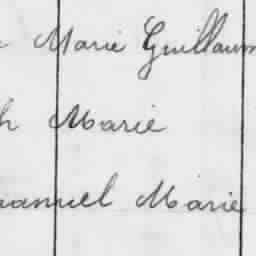 Marie Guillaum
h Marie
anuel Marie